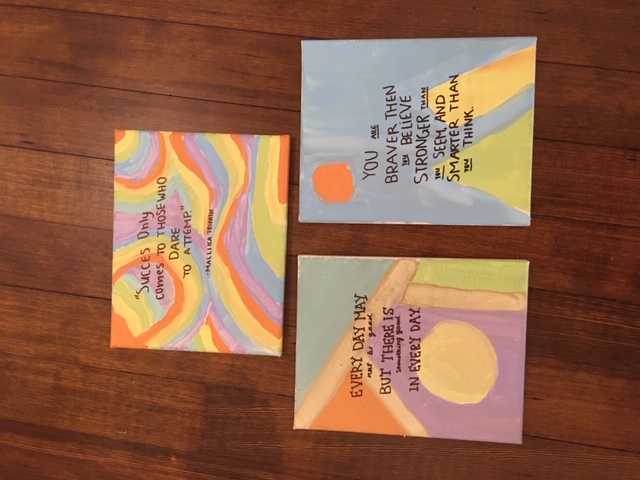 "SUCCES Only
comes TO THOSE WHO
DARE
TO ATTEMP."
-MALLIKA TRIPATHI
EVERY DAY MAY
not be good
BUT THERE IS
something good
IN EVERY DAY.
YOU ARE
BRAVER THEN
YOU BELIEVE
STRONGER THAN
YOU SEEM, AND
SMARTER THAN
YOU THINK.